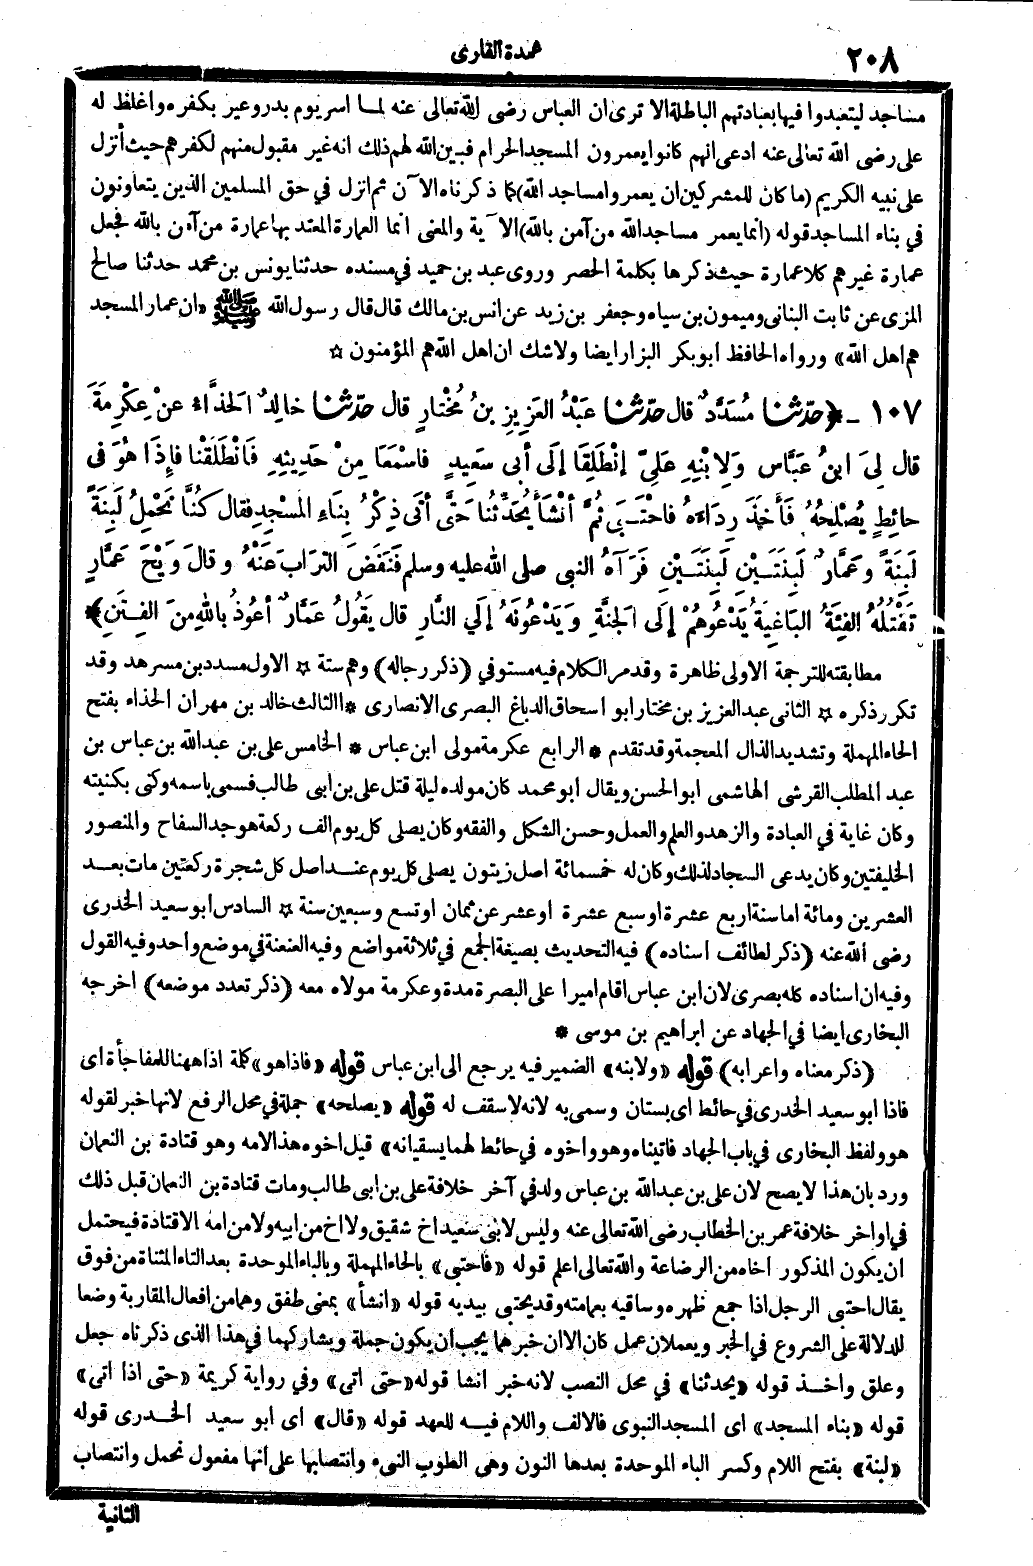 ٢٠٨
عمدة القارى
مساجد ليتعبدوا فيها بعبادتهم الباطلة الا ترى ان العباس رضى الله تعالى عنه لما اسر يوم بدر وعير بكفره واغلظ له
على رضى الله تعالى عنه ادعى انهم كانوا يعمرون المسجد الحرام فبين الله لهم ذلك انه غير مقبول منهم لكفرهم حيث أنزل
على نبيه الكريم (ما كان للمشركين ان يعمروا مساجد الله) كما ذكرناه الآن ثم انزل في حق المسلمين الذين يتعاونون
في بناء المساجد قوله (انما يعمر مساجد الله من آمن بالله) الآية والمعنى انما العمارة المعتد بها عمارة من آمن بالله فجعل
عمارة غيرهم كلا عمارة حيث ذكرها بكلمة الحصر وروى عبد بن حميد في مسنده حدثنا يونس بن محمد حدثنا صالح
المزى عن ثابت البنانى وميمون بن سياه وجعفر بن زيد عن انس بن مالك قال قال رسول الله ﷺ «ان عمار المسجد
هم اهل الله» ورواه الحافظ ابو بكر البزار ايضا ولا شك ان اهل الله هم المؤمنون ☆
١٠٧ - ﴿حدّثنا مُسَدَّدٌ قال حدّثنا عَبْدُ العَزِيزِ بنُ مُخْتارٍ قال حدّثنا خالِدٌ الحَذَّاءُ عنْ عِكْرِمَةَ
قال لِىَ ابنُ عَبَّاسٍ وَلِابْنِهِ عَلِىٍّ إنْطَلِقَا إلَى أبى سَعِيدٍ فاسْمَعَا مِنْ حَدِيثِهِ فَانْطَلَقْنا فإذَا هُوَ فى
حائطٍ يُصْلِحُهُ فَأَخَذَ رِدَاءَهُ فاحْتَبَى ثُمَّ أنْشَأَ يُحَدِّثُنا حَتَّى أتَى ذِكْرُ بِنَاءِ المسْجِدِ فقال كُنَّا نَحْمِلُ لَبِنَةً
لَبِنَةً وعَمَّارٌ لَبِنَتَيْنِ لَبِنَتَيْنِ فَرَآهُ النبى صلى الله عليه وسلم فَنَفَضَ التُّرَابَ عَنْهُ وقالَ وَيْحَ عَمَّارٍ
تَقْتُلُهُ الفِئَةُ البَاغِيَةُ يَدْعُوهُمْ إلَى الجَنَّةِ وَيَدْعُونَهُ إلَي النَّارِ قال يَقُولُ عَمَّارٌ أعُوذُ بالله مِنَ الفِتَنِ﴾
مطابقته للترجمة الاولى ظاهرة وقد مر الكلام فيه مستوفي (ذكر رجاله) وهم ستة ☆ الاول مسدد بن مسرهد وقد
تكرر ذكره ☆ الثانى عبد العزيز بن مختار ابو اسحاق الدباغ البصرى الانصارى * الثالث خالد بن مهران الحذاء بفتح
الحاء المهملة وتشديد الذال المعجمة وقد تقدم * الرابع عكرمة مولى ابن عباس * الخامس على بن عبد الله بن عباس بن
عبد المطلب القرشى الهاشمى ابو الحسن ويقال ابو محمد كان مولده ليلة قتل على بن ابى طالب فسمى باسمه وكنى بكنيته
وكان غاية في العبادة والزهد والعلم والعمل وحسن الشكل والفقه وكان يصلى كل يوم الف ركعة هو جد السفاح والمنصور
الخليفتين وكان يدعى السجاد لذلك وكان له خمسمائة اصل زيتون يصلى كل يوم عند اصل كل شجرة ركعتين مات بعد
العشرين ومائة اما سنة اربع عشرة او سبع عشرة او عشر عن ثمان او تسع وسبعين سنة ☆ السادس ابو سعيد الخدرى
رضى الله عنه (ذكر لطائف اسناده) فيه التحديث بصيغة الجمع في ثلاثة مواضع وفيه العنعنة في موضع واحد وفيه القول
وفيه ان اسناده كله بصرى لان ابن عباس اقام اميرا على البصرة مدة وعكرمة مولاه معه (ذكر تعدد موضعه) اخرجه
البخارى ايضا في الجهاد عن ابراهيم بن موسى *
(ذكر معناه واعرابه) قوله «ولابنه» الضمير فيه يرجع الى ابن عباس قوله «فاذا هو» كلمة اذا ههنا للمفاجأة اى
فاذا ابو سعيد الخدرى في حائط اى بستان وسمى به لانه لا سقف له قوله «يصلحه» جملة في محل الرفع لانها خبر لقوله
هو ولفظ البخارى في باب الجهاد فاتيناه وهو واخوه في حائط لهما يسقيانه» قيل اخوه هذا لامه وهو قتادة بن النعمان
ورد بان هذا لا يصح لان على بن عبد الله بن عباس ولد في آخر خلافة على بن ابى طالب ومات قتادة بن النعمان قبل ذلك
في اواخر خلافة عمر بن الخطاب رضى الله تعالى عنه وليس لابى سعيد اخ شقيق ولا اخ من ابيه ولا من امه الا قتادة فيحتمل
ان يكون المذكور اخاه من الرضاعة والله تعالى اعلم قوله «فاحتبى» بالحاء المهملة وبالباء الموحدة بعد التاء المثناة من فوق
يقال احتبى الرجل اذا جمع ظهره وساقيه بعمامته وقد يحتبى بيديه قوله «انشأ» بمعنى طفق وهما من افعال المقاربة وضعا
للدلالة على الشروع في الخبر ويعملان عمل كان الا ان خبرهما يجب ان يكون جملة ويشاركهما في هذا الذى ذكرناه جعل
وعلق واخذ قوله «يحدثنا» في محل النصب لانه خبر انشا قوله «حتى اتى» وفي رواية كريمة «حتى اذا اتى»
قوله «بناء المسجد» اى المسجد النبوى فالالف واللام فيه للعهد قوله «قال» اى ابو سعيد الخدرى قوله
«لبنة» بفتح اللام وكسر الباء الموحدة بعدها النون وهى الطوب النىء وانتصابها على أنها مفعول نحمل وانتصاب
الثانية